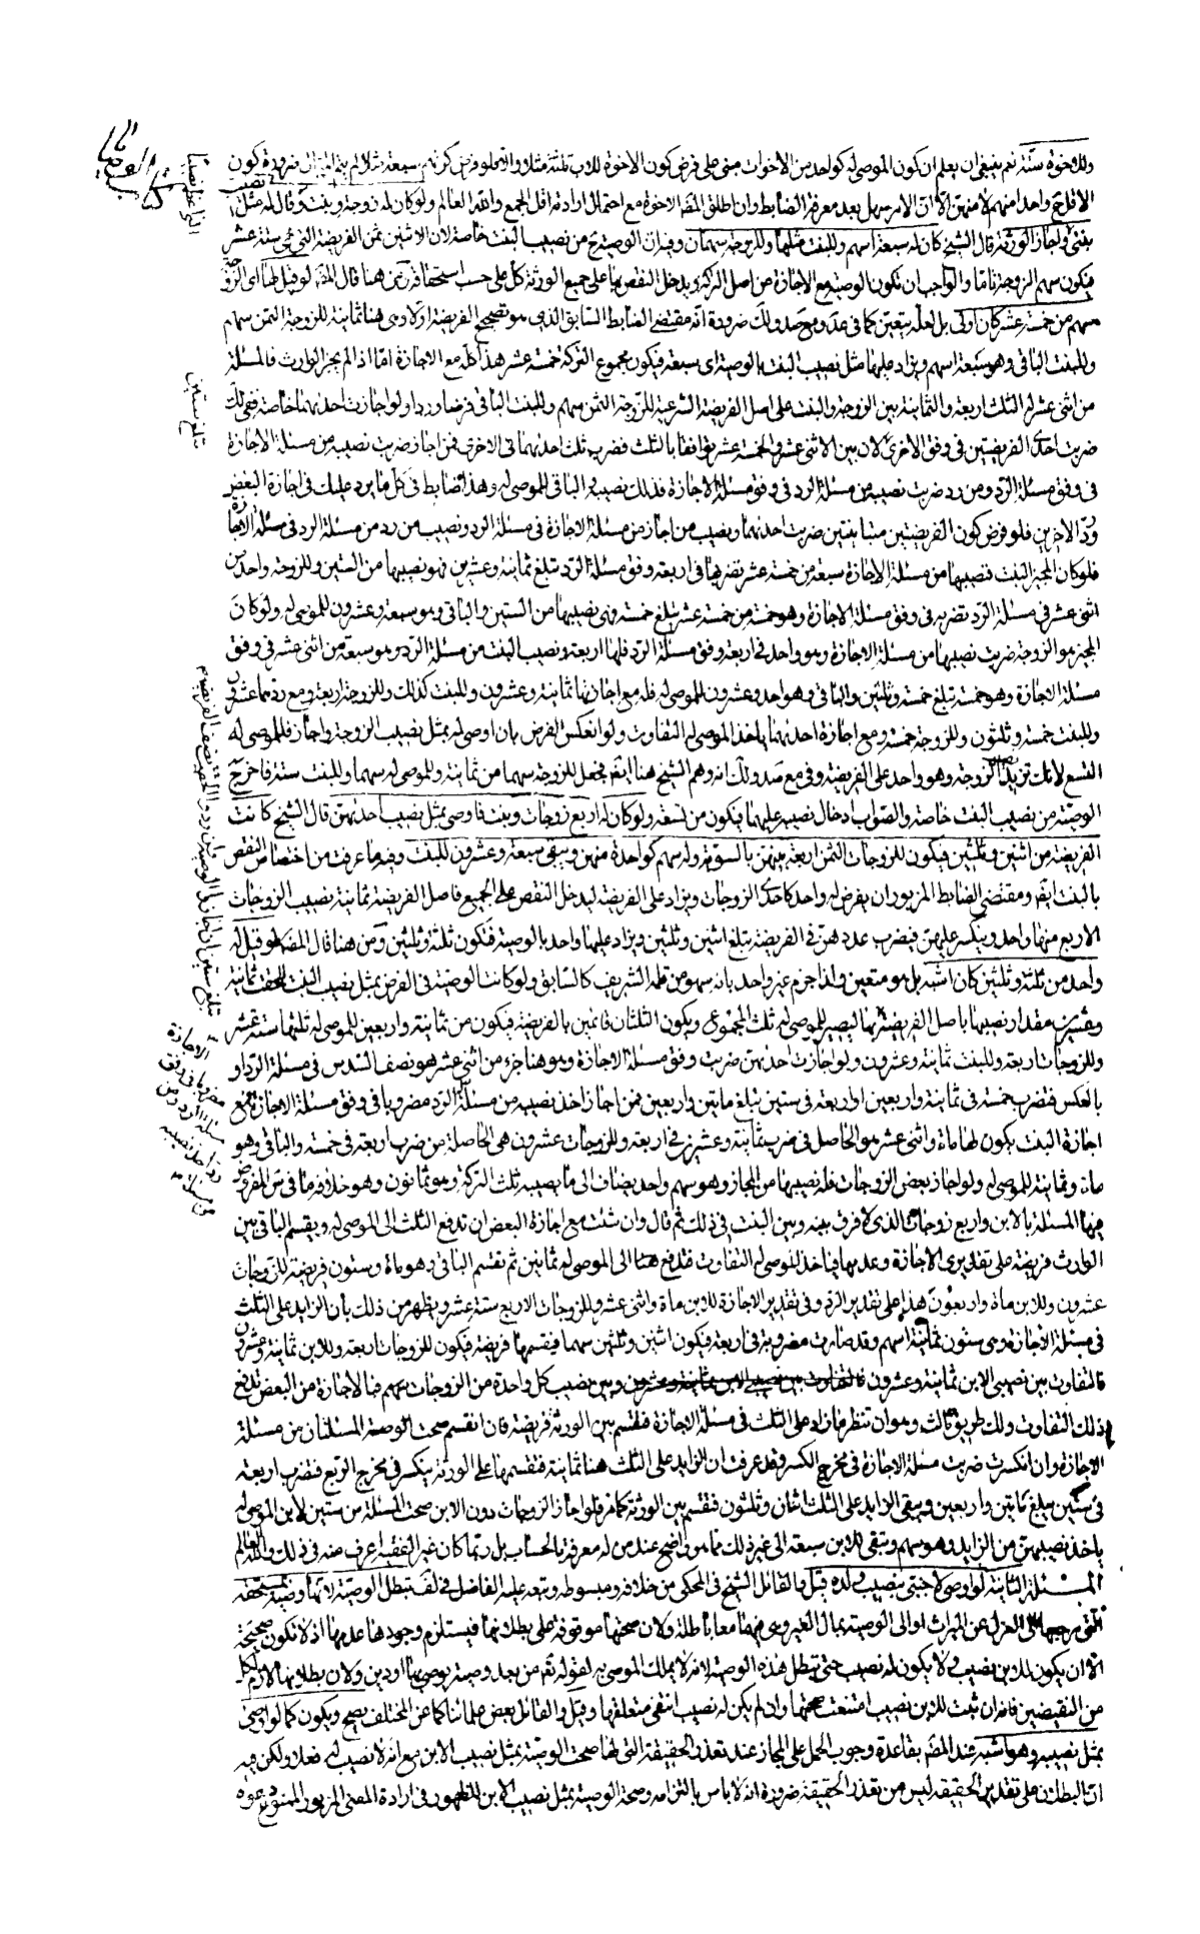 وللاخوة ستة نعم ينبغي ان يعلم ان كون الموصى له كواحد من الاخوات مبنى على فرض كون الاخوة للاب ثلثة مثلا والا فلو فرض كونهم سبعة مثلا لم يتم ضرورة كون
الاقل ح واحدا منهم لا منهن الا ان الامر سهل بعد معرفة الضابط وان اطلق المصـ الاخوة مع احتمال ارادته اقل الجمع والله العالم ولو كان له زوجة وبنت وقال له مثل نصيب
بنتى واجاز الورثة قال الشيخ كان له سبعة اسهم وللبنت مثلها وللزوجة سهمان وفيه ان الوصية ح من نصيب البنت خاصة لان الاثنين ثمن الفريضة التى هى ستة عشر
فيكون سهم الزوجة تاما والواجب ان تكون الوصية مع الاجازة من اصل التركة ويدخل النقص بها على جميع الورثة كل على حسب استحقاقه ومن هنا قال المصـ لو قيل لها اى الزوجة
سهم من خمسة عشر كان اولى بل لعله يتعين كما في عد ومع صد ولك ضرورة انه مقتضى الضابط السابق الذى هو تصحيح الفريضة اولا وهى هنا ثمانية للزوجة الثمن سهم
وللبنت الباقى وهو سبعة اسهم ويزاد عليها مثل نصيب البنت بالوصية اى سبعة فيكون مجموع التركة خمسة عشر هذا كله مع الاجازة اما اذا لم يجز الوارث فالمسئلة
من اثنى عشر له الثلث اربعة والثمانية بين الزوجة والبنت على اصل الفريضة الشرعية للزوجة الثمن سهم وللبنت الباقى فرضا وردا ولو اجازت احدهما خاصة فى ذلك
ضربت احدى الفريضتين في وفق الاخرى لان بين الاثنى عشر والخمسة عشر توافقا بالثلث فضرب ثلث احدهما في الاخرى فمن اجاز ضرب نصيبه من مسئلة الاجازة
في وفق مسئلة الرد ومن رد ضربت نصيبه من مسئلة الرد في وفق مسئلة الاجازة فذلك نصيبه والباقى للموصى له وهذا ضابط في كل ما يرد عليك في اجازة البعض
ورد الاخرين فلو فرض كون الفريضتين متباينتين ضربت احدهما ونصيب من اجاز من مسئلة الاجازة في مسئلة الرد ونصيب من رد من مسئلة الرد في مسئلة الاجازة
فلو كان المجيز البنت فنصيبها من مسئلة الاجازة سبعة من خمسة عشر نضربها في اربعة وفق مسئلة الرد تبلغ ثمانية وعشرين فهو نصيبها من الستين وللزوجة واحد من
اثنى عشر في مسئلة الرد نضربه في وفق مسئلة الاجازة وهو خمسة من خمسة عشر يبلغ خمسة فهى نصيبها من الستين والباقى وهو سبعة وعشرون للموصى له ولو كان
المجيز هو الزوجة ضربت نصيبها من مسئلة الاجازة وهو واحد في اربعة وفق مسئلة الرد فلها اربعة ونصيب البنت من مسئلة الرد وهو سبعة من اثنى عشر في وفق
مسئلة الاجازة وهو خمسة تبلغ خمسة وثلثين والباقى وهو احد وعشرون للموصى له فله مع اجازتهما ثمانية وعشرون وللبنت كذلك وللزوجة اربعة ومع ردهما عشرون
وللبنت خمسة وثلثون وللزوجة خمسة ومع اجازة احدهما ياخذ الموصى له التفاوت ولو انعكس الفرض بان اوصى له بمثل نصيب الزوجة واجاز فللموصى له
التسع لانك تزيد نصيب الزوجة وهو واحد على الفريضة وفي مع صد ولك انه وهم الشيخ هنا ايضـ فجعل للزوجة سهما من ثمانية وللموصى له سهما وللبنت ستة فاخرج
الوصية من نصيب البنت خاصة والصواب ادخال نصيبه عليهما فيكون من تسعة ولو كان له اربع زوجات وبنت فاوصى بمثل نصيب احدهن قال الشيخ كانت
الفريضة من اثنين وثلثين فيكون للزوجات الثمن اربعة بينهن بالسوية وله سهم كواحدة منهن ويبقى سبعة وعشرون للبنت وفيه ما عرفت من اختصاص النقص
بالبنت ايضـ ومقتضى الضابط المزبور ان يفرض له واحد كاحدى الزوجات ويزاد على الفريضة ليدخل النقص على الجميع فاصل الفريضة ثمانية نصيب الزوجات
الاربع منها واحد وينكسر عليهن فيضرب عددهن في الفريضة يبلغ اثنين وثلثين ويزاد عليها واحد بالوصية فتكون ثلثة وثلثين ومن هنا قال المصـ لو قيل له
واحد من ثلثة وثلثين كان اشبه بل هو متعين ولذا جزم غير واحد بانه سهو من قلمه الشريف كالسابق ولو كانت الوصية في الفرض بمثل نصيب البنت لحقت ثمانية
وعشرين مقدار نصيبها باصل الفريضة بها ليصير للموصى له ثلث المجموع ويكون الثلثان قائمين بالفريضة فيكون من ثمانية واربعين للموصى له ثلثها ستة عشر
وللزوجات اربعة وللبنت ثمانية وعشرون ولو اجازت احدهن ضربت وفق مسئلة الاجازة وهو هنا جزء من اثنى عشر هو نصف السدس في مسئلة الرد او
بالعكس فتضرب خمسة في ثمانية واربعين او اربعة في ستين تبلغ ماتين واربعين فمن اجاز اخذ نصيبه من مسئلة الرد مضروبا في وفق مسئلة الاجازة فمع
اجازة البنت يكون لها مائة واثنى عشر هو الحاصل في ضرب ثمانية وعشرين في اربعة وللزوجات عشرون هى الحاصلة من ضرب اربعة في خمسة والباقى وهو
مائة وثمانية للموصى له ولو اجاز بعض الزوجات فله نصيبها من المجاز وهو سهم واحد يضاف الى ما يصيبه ثلث التركة وهو ثمانون وهو خلاف ما فى المفروض
فيها المسئلة بالابن واربع زوجات الذى لا فرق بينه وبين البنت في ذلك ثم قال وان شئت مع اجازة البعض ان تدفع الثلث الى الموصى له ويقسم الباقى بين
الوارث فريضة على تقديرى الاجازة وعدمها فياخذ الموصى له التفاوت فتدفع هنا الى الموصى له ثمانين ثم تقسم الباقى وهو مائة وستون فريضة للزوجات
عشرون وللابن مائة واربعون هذا على تقدير الرد وفي تقدير الاجازة للابن مائة واثنى عشر وللزوجات الاربع ستة عشر ويظهر من ذلك بان الزايد على الثلث
في مسئلة الاجازة وهى ستون ثمانية اسهم وقد صارت مضروبة في اربعة فيكون اثنين وثلثين سهما فيقسمها فريضة فيكون للزوجات اربعة وللابن ثمانية وعشرون
فالتفاوت بين نصيبى الابن ثمانية وعشرون وبين نصيب كل واحدة من الزوجات سهم فبالاجازة من البعض تدفع
ذلك التفاوت ولك طريق ثالث وهو ان تنظر ما زاد على الثلث في مسئلة الاجازة فتقسم بين الورثة فريضة فان انقسم صحت الوصية المسئلتان من مسئلة
الاجازة وان انكسرت ضربت مسئلة الاجازة في مخرج الكسر وقد عرفت ان الزايد على الثلث هنا ثمانية فتقسمها على الورثة ينكسر في مخرج الربع فتضرب اربعة
في ستين يبلغ ماتين واربعين ويبقى الزايد على الثلث اثنان وثلثون فتقسم بين الورثة كما مر فلو اجاز الزوجات دون الابن صحت المسئلة من ستين لان الموصى له
ياخذ نصيبهن من الزايد وهو سهم وتبقى للابن سبعة الى غير ذلك مما هو واضح عند من له معرفة بالحساب بل ربما كان غير الفقيه اعرف منه في ذلك والله العالم
المسئلة الثانية لو اوصى لاجنبى بنصيب ولده قيل والقائل الشيخ في المحكى من خلافه ومبسوطه وتبعه عليه الفاضل في لف تبطل الوصية لانها وصية بمستحقه
التى مرجعها الى العزل عن الميراث او الى الوصية بمال الغير وهى فيهما معا باطلة ولان صحتها موقوفة على بطلانها فيستلزم وجودها عدمها اذ لا تكون صحيحة
الا ان يكون للابن نصيب ولا يكون له نصيب حتى تبطل هذه الوصية لانه لا يملك الموصى به لقوله تع من بعد وصية يوصى بها او دين ولان بطلانها لازم لكل
من النقيضين فانه ان ثبت للابن نصيب امتنعت صحتها وان لم يكن له نصيب انتفى متعلقها وقيل والقائل بعض علمائنا كما عن المختلف يصح ويكون كما لو اوصى
بمثل نصيبه وهو اشبه عند المصـ بقاعدة وجوب الحمل على المجاز عند تعذر الحقيقة التى لها صحت الوصية بمثل نصيب الابن مع انه لا نصيب له فعلا ولكن فيه
ان البطلان على تقدير الحقيقة ليس من تعذر الحقيقة ضرورة انه لا باس بالتزامه وصحة الوصية بمثل نصيب الابن للظهور في ارادة المعنى المزبور الممنوع دعواه
تبلغ ستين
الاجازة
مضروبا في وفق
مسئلة الرد ومن
رد اخذ نصيبه
من مسئلة